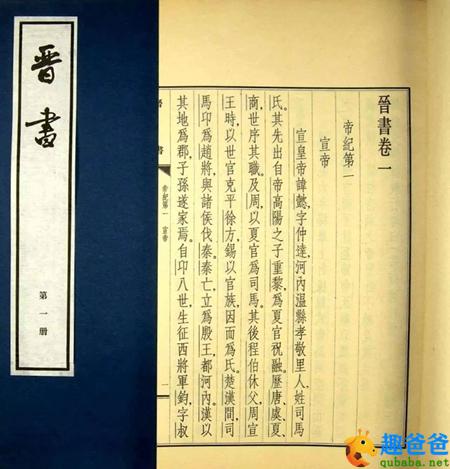 晉書
第一册
晉書卷一
帝紀第一
宣帝
宣皇帝諱懿，字仲達，河內溫縣孝敬里人，姓司馬
氏。其先出自帝高陽之子重黎，爲夏官祝融。歷唐、虞、夏、
商，世序其職。及周，以夏官爲司馬。其後程伯休父，周宣
王時，以世官克平徐方，錫以官族，因而爲氏。楚漢間，司
馬卬爲趙將，與諸侯伐秦。秦亡，立爲殷王，都河內。漢以
其地爲郡，子孫遂家焉。自卬八世，生征西將軍鈞，字叔
帝紀第一 宣帝
一
趣爸爸
qubaba.net